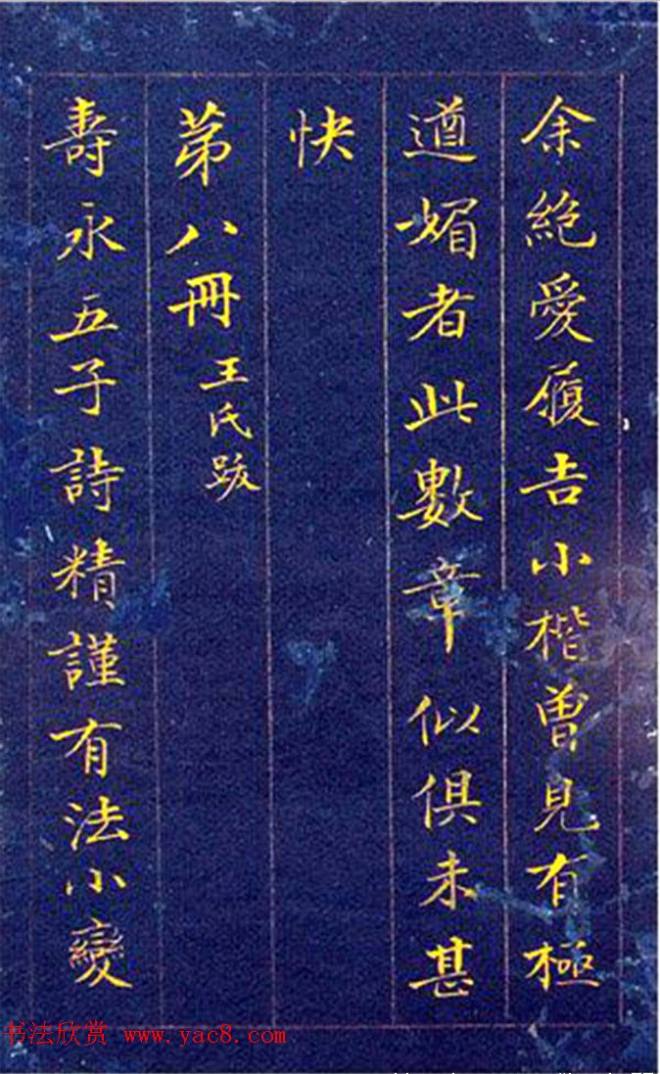 余絶愛履吉小楷曾見有極
遒媚者此數章似俱未甚
快
苐八冊王氏跋
壽承五子詩精謹有法小變
书法欣赏 www.yac8.com